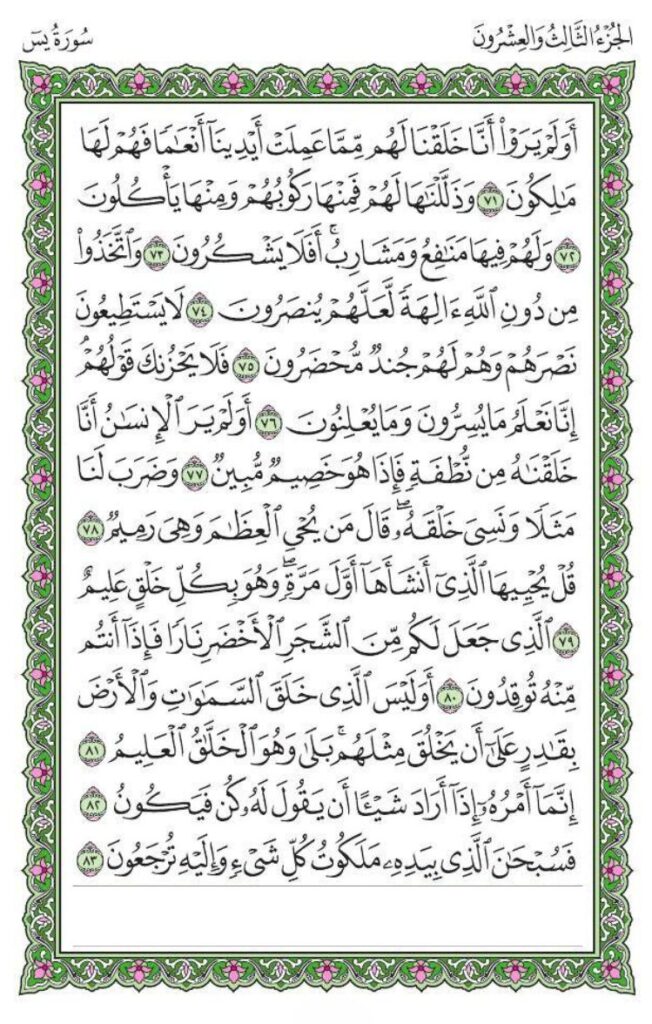 الجُزْءُ الثَّالِثُ وَالعِشْرُونَ
سُورَةُ يسٓ
أَوَلَمْ يَرَوْا۟ أَنَّا خَلَقْنَا لَهُم مِّمَّا عَمِلَتْ أَيْدِينَآ أَنْعَـٰمًا فَهُمْ لَهَا
مَـٰلِكُونَ ٧١ وَذَلَّلْنَـٰهَا لَهُمْ فَمِنْهَا رَكُوبُهُمْ وَمِنْهَا يَأْكُلُونَ
٧٢ وَلَهُمْ فِيهَا مَنَـٰفِعُ وَمَشَارِبُ ۚ أَفَلَا يَشْكُرُونَ ٧٣ وَٱتَّخَذُوا۟
مِن دُونِ ٱللَّهِ ءَالِهَةً لَّعَلَّهُمْ يُنصَرُونَ ٧٤ لَا يَسْتَطِيعُونَ
نَصْرَهُمْ وَهُمْ لَهُمْ جُندٌ مُّحْضَرُونَ ٧٥ فَلَا يَحْزُنكَ قَوْلُهُمْ ۘ
إِنَّا نَعْلَمُ مَا يُسِرُّونَ وَمَا يُعْلِنُونَ ٧٦ أَوَلَمْ يَرَ ٱلْإِنسَـٰنُ أَنَّا
خَلَقْنَـٰهُ مِن نُّطْفَةٍ فَإِذَا هُوَ خَصِيمٌ مُّبِينٌ ٧٧ وَضَرَبَ لَنَا
مَثَلًا وَنَسِىَ خَلْقَهُۥ ۖ قَالَ مَن يُحْىِ ٱلْعِظَـٰمَ وَهِىَ رَمِيمٌ ٧٨
قُلْ يُحْيِيهَا ٱلَّذِىٓ أَنشَأَهَآ أَوَّلَ مَرَّةٍ ۖ وَهُوَ بِكُلِّ خَلْقٍ عَلِيمٌ
٧٩ ٱلَّذِى جَعَلَ لَكُم مِّنَ ٱلشَّجَرِ ٱلْأَخْضَرِ نَارًا فَإِذَآ أَنتُم
مِّنْهُ تُوقِدُونَ ٨٠ أَوَلَيْسَ ٱلَّذِى خَلَقَ ٱلسَّمَـٰوَٰتِ وَٱلْأَرْضَ
بِقَـٰدِرٍ عَلَىٰٓ أَن يَخْلُقَ مِثْلَهُم ۚ بَلَىٰ وَهُوَ ٱلْخَلَّـٰقُ ٱلْعَلِيمُ ٨١
إِنَّمَآ أَمْرُهُۥٓ إِذَآ أَرَادَ شَيْـًٔا أَن يَقُولَ لَهُۥ كُن فَيَكُونُ ٨٢
فَسُبْحَـٰنَ ٱلَّذِى بِيَدِهِۦ مَلَكُوتُ كُلِّ شَىْءٍ وَإِلَيْهِ تُرْجَعُونَ ٨٣